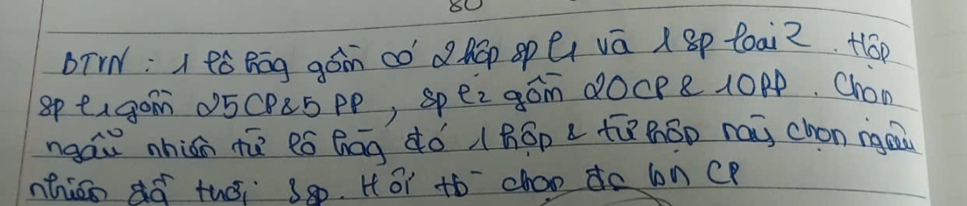 80
BTVN : 1 lô hàg gồm có 2 hộp sp l1 và 1 sp loại 2 . Hộp
sp l1 gồm 25CP & 5 PP , sp l2 gồm 20CP & 10PP . Chọn
ngẫu nhiên từ lô hàg đó 1 hộp & từ hộp này chọn ngẫu
nhiên 3 sp . Hỏi tb chọn đc bn CP